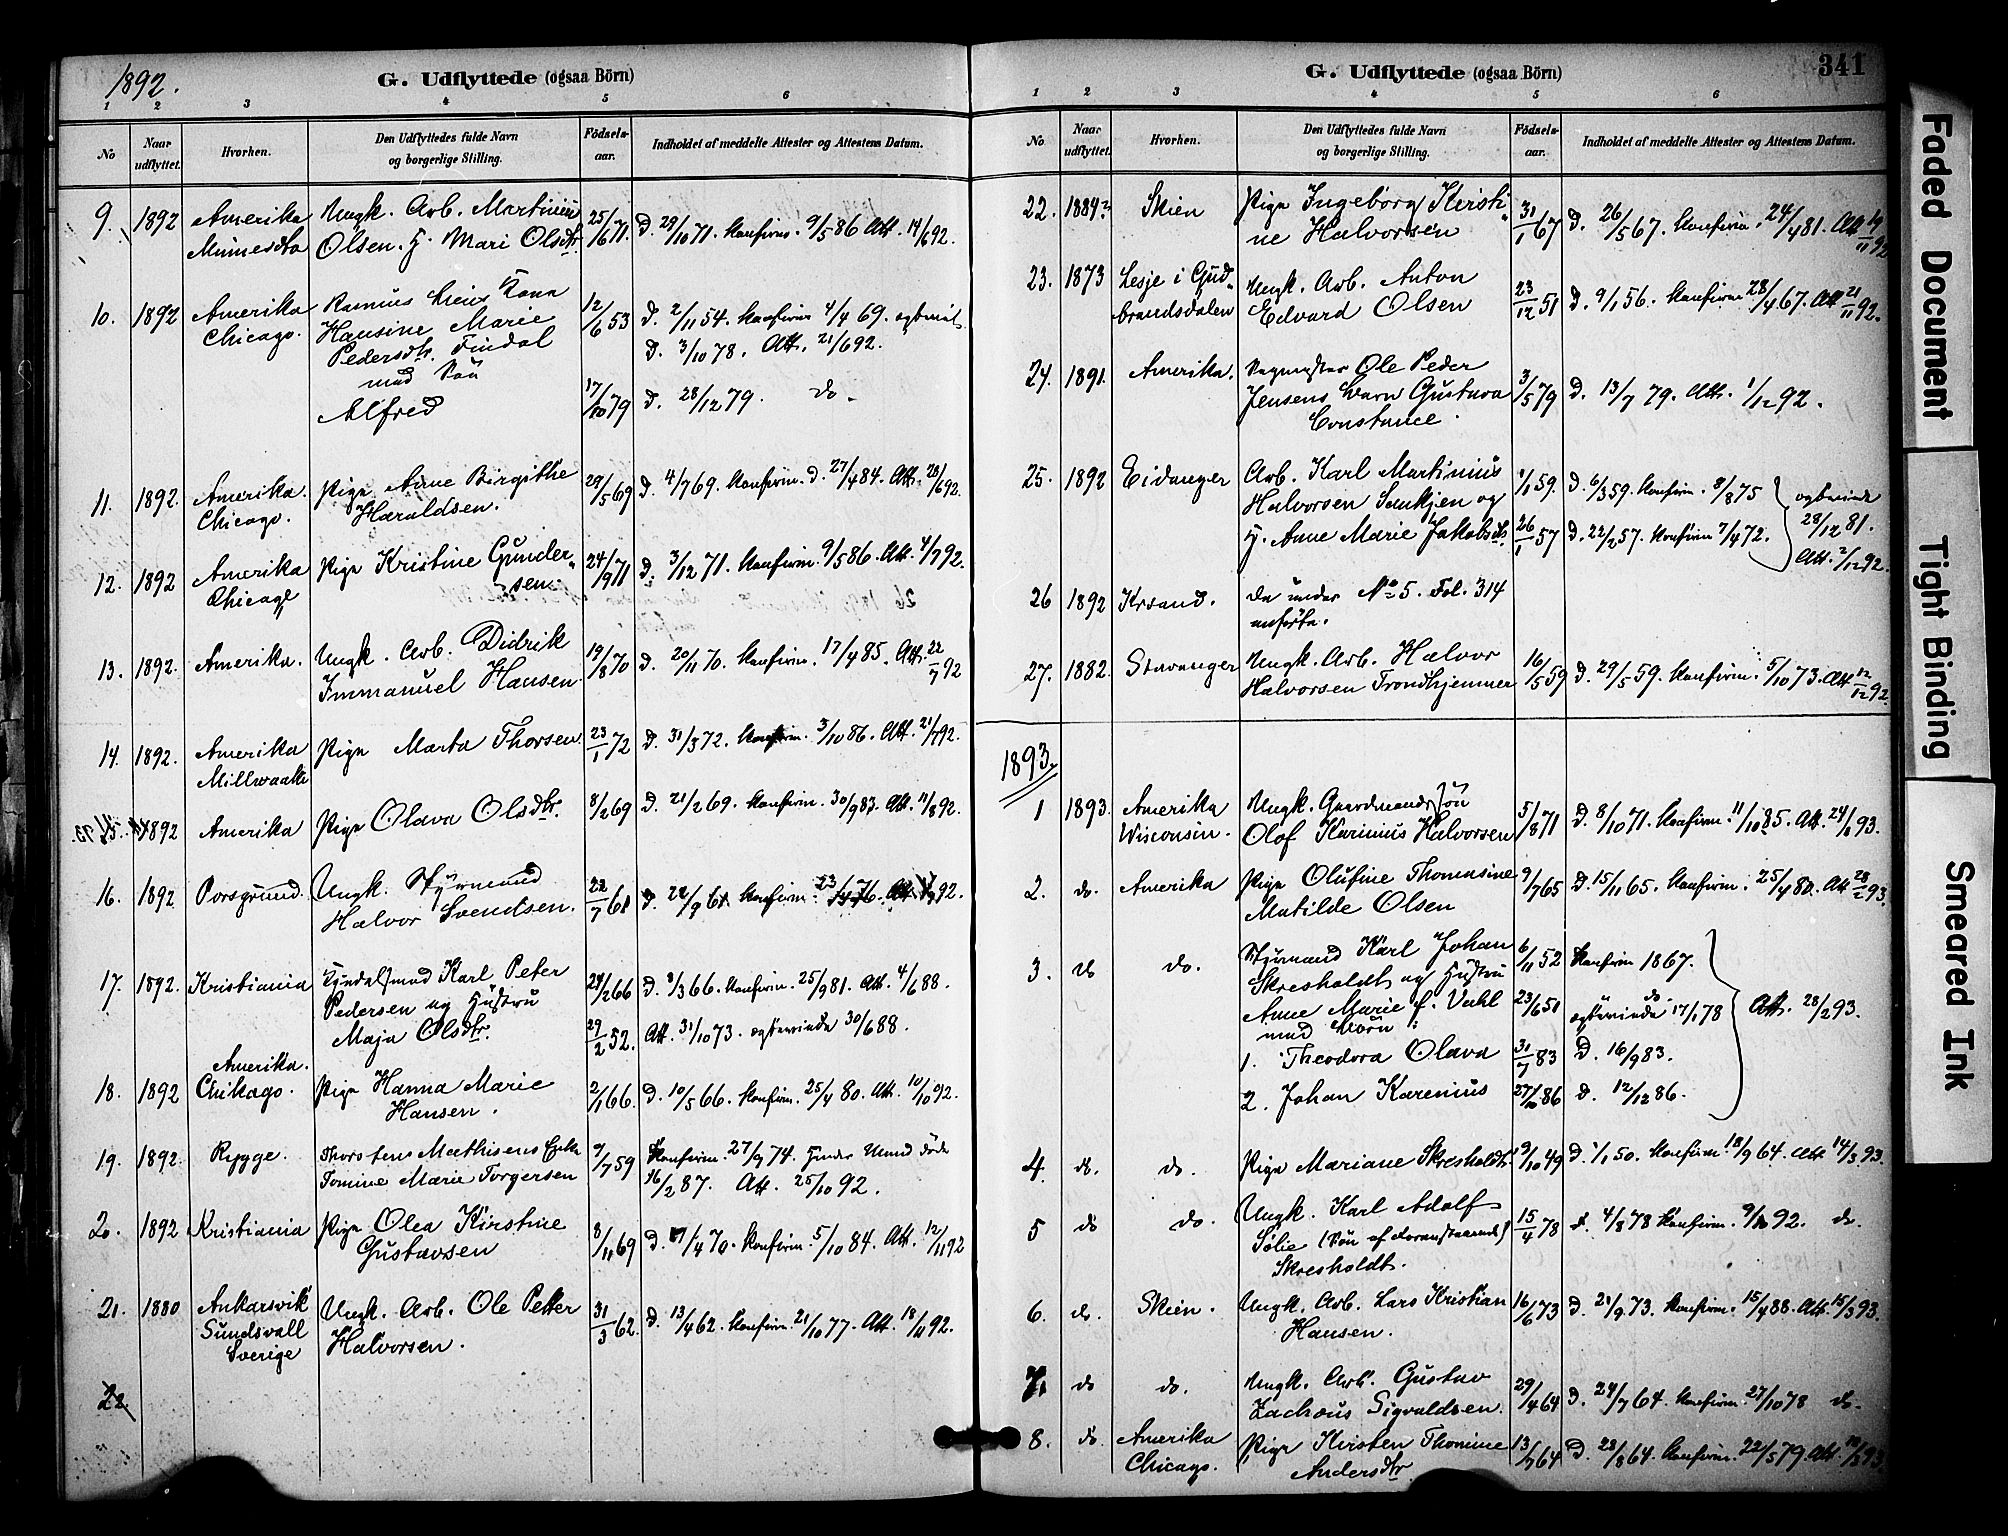 1892.
G. Udflyttede (ogsaa Börn)
1 2 3 4 5 6
No
Naar udflyttet.
Hvorhen.
Den Udflyttedes fulde Navn og borgerlige Stilling.
Födsels-aar.
Indholdet af meddelte Attester og Attestens Datum.
9. 1892 Amerika Ungk. Arb. Martinius 25/6 71. D. 29/10 71. Konfirm. 9/5 86 Att. 14/6 92.
Minnesota Olsen. H. Mari Olsdtr.
10. 1892 Amerika 12/6 53 D. 2/11 54. Konfirm 4/4 69.
Chicago. Hansine Marie D. 3/10 78. Att. 21/6 92.
Pedersdtr. Findal
med Søn
Alfred 17/10 79 D. 28/12 79. do.
11. 1892. Amerika. Pige Anne Birgithe 29/5 69 D. 4/7 69. Konfirm. D. 27/4 84. Att. 28/6 92.
Chicago. Haraldsen.
12. 1892 Amerika Pige Kristine Gunder- 24/9 71 D. 3/12 71. Konfirm. 9/5 86. Att. 4/7 92.
Chicago sen.
13. 1892. Amerika. Ungk. Arb. Didrik 19/8 70 D. 20/11 70. Konfirm. 17/4 85. Att. 22/7 92
Immanuel Hansen.
14. 1892. Amerika Pige Marta Thorsen 23/1 72 D. 31/3 72. Konfirm. 3/10 86. Att. 21/7 92.
Millwaukee
15. 1892 Amerika Pige Olava Olsdtr. 8/2 69 D. 21/2 69. Konfirm. 30/9 83. Att. 11/8 92.
16. 1892 Porsgrund. Ungk. Styrmand 22/7 61 D. 22/9 61 Konfirm. 23/4 76. Att. 92.
Halvor Svendsen.
17. 1892. Kristiania Karl Peter 24/2 66 D. 3/3 66. Konfirm. 25/9 81. Att. 4/6 88.
Pedersen og Hustru
Maja Olsdtr. 29/2 52. Att. 31/10 73. ægteviede 30/6 88.
Amerika.
18. 1892 Chikago. Pige Hanna Marie 2/1 66. D. 10/5 66. Konfirm. 25/4 80. Att. 10/10 92.
Hansen.
19. 1892. Rygge. Thorsten Mathisens Enke 9/7 59 Konfirm. 27/9 74. Hendes Mand døde
Tomine Marie Torgersen 16/2 87. Att. 25/10 92.
20. 1892 Kristiania Pige Olea Kirstine 8/11 69 D. 17/4 70. Konfirm. 5/10 84. Att. 12/11 92
Gustavsen
21. 1880 Ankarsvik Ungk. Arb. Ole Petter 31/3 62. D. 13/4 62. Konfirm. 21/10 77. Att. 18/11 92.
Sundsvall Halvorsen.
Sverige
22
G. Udflyttede (ogsaa Börn)
341
1 2 3 4 5 6
No.
Naar udflyttet.
Hvorhen.
Den Udflyttedes fulde Navn og borgerlige Stilling.
Födsels-aar.
Indholdet af meddelte Attester og Attestens Datum.
22. 1884? Skien Pige Ingeborg Kirsti- 31/1 67 D. 26/5 67. Konfirm. 24/4 81. Att 19/11 92
ne Halvorsen
23. 1873 Lesje i Gud- Ungk. Arb. Anton 23/12 51 D. 9/1 56. Konfirm. 28/4 67. Att 21/11 92.
brandsdalen Edvard Olsen
24. 1891. Amerika. Ole Peder 3/5 79 D. 13/7 79. Att. 1/12 92.
Jensens Barn Gustava
Constance.
25. 1892 Eidanger Arb. Karl Martinius 1/1 59. D. 6/3 59. Konfirm. 8/8 75 ægteviede
Halvorsen og 28/12 81.
H. Anne Marie Jakobsdtr. 26/1 57 D. 22/2 57. Konfirm 7/4 72. Att. 2/12 92.
26 1892 Krsand. De under No 5. Fol. 314
anførte.
27. 1882. Stavanger Ungk. Arb. Halvor 16/5 59 D. 29/5 59. Konfirm. 5/10 73. Att 12/12 92.
Halvorsen Trondhjemmer
1893.
1 1893. Amerika Ungk. Gaardmandssøn 5/8 71 D. 8/10 71. Konfirm. 11/10 85. Att. 24/1 93.
Wisconsin. Olof Karinius Halvorsen
2. do. Amerika Pige Olufine Thomasine 9/7 65 D. 15/11 65. Konfirm. 25/4 80. Att 28/2 93.
Matilde Olsen
3. do do. Styrmand Karl Johan 6/11 52 Konfirm 1867.
Skresholdt og Hustru do.
Anne Marie f. Vahl 23/6 51 ægteviede 17/1 78 Att. 28/2 93.
med Børn:
1. Theodora Olava 31/7 83 D. 16/9 83.
2. Johan Karenius 27/10 86 D. 12/12 86.
4. do. do. Pige Mariane Skresholdt 9/10 49 D. 1/1 50. Konfirm. 18/9 64. Att. 14/3 93.
5 do do. Ungk. Karl Adolf 15/4 78 D. 4/8 78 Konfirm. 9/10 92. do.
Sølie (Søn af foranstaaende)
Skresholdt.
6. do. Skien. Ungk. Arb. Lars Kristian 16/6 73 D. 21/9 73. Konfirm. 15/4 88. Att. 15/3 93.
Hansen.
7. do do. Ungk. Arb. Gustav 29/4 64 D. 24/7 64. Konfirm. 27/10 78 do.
Zachæus Sigvaldsen.
8. do. Amerika Pige Kirsten Thomine 13/7 64 D. 28/8 64. Konfirm. 22/5 79. Att. 93.
Chicago. Andersdtr.
Faded Document
Tight Binding
Smeared Ink